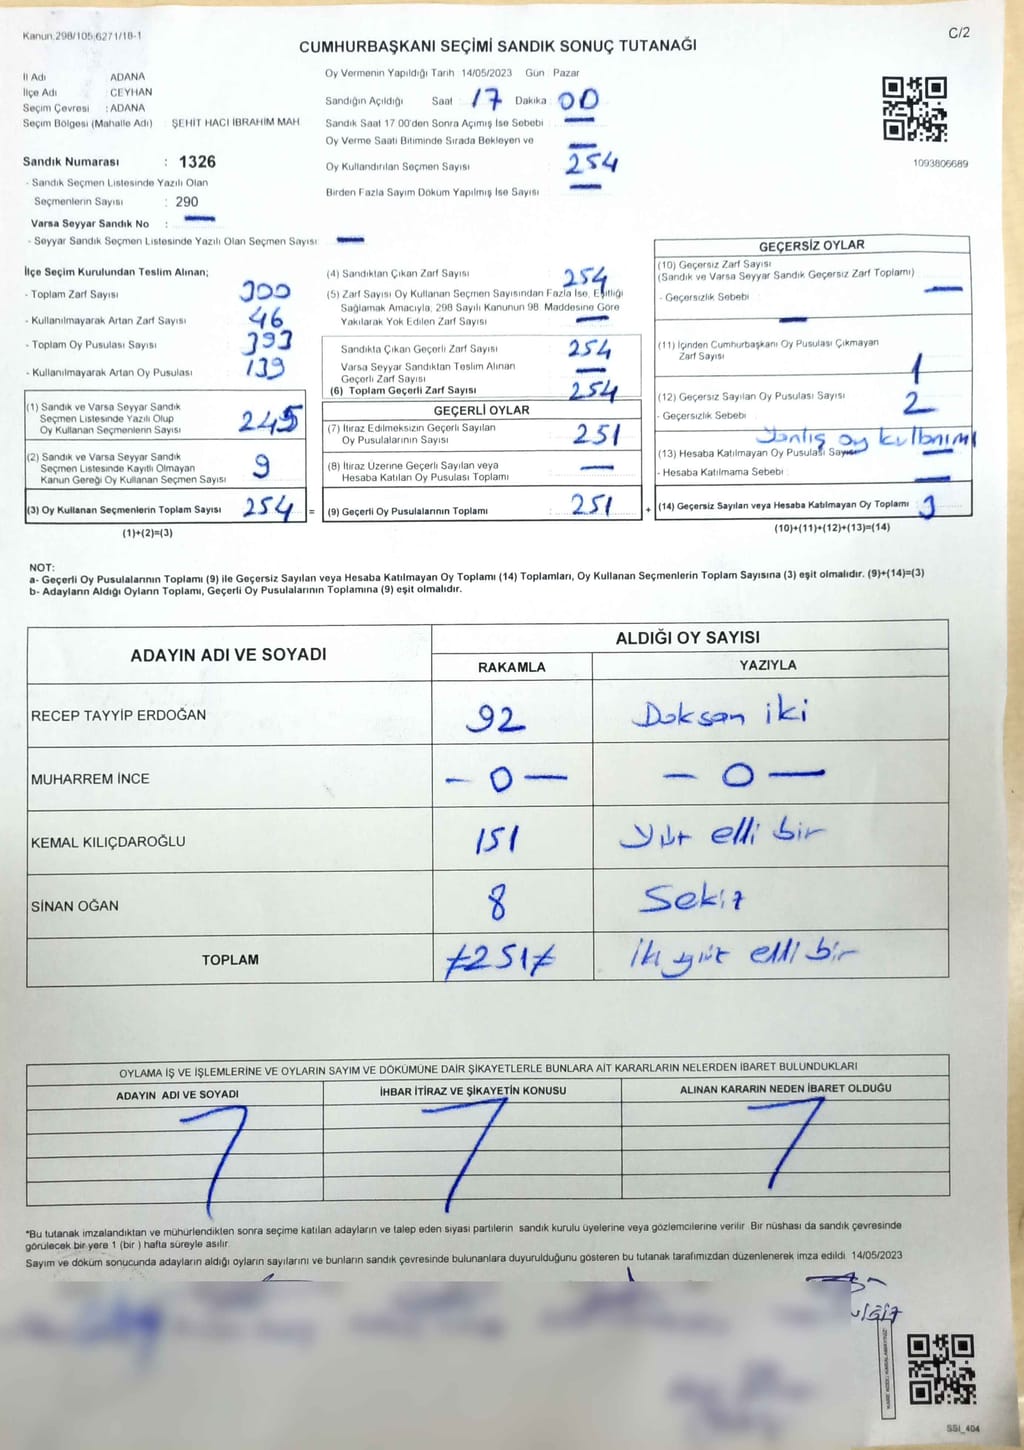 Kanun.298/105,6271/18-1
C/2
CUMHURBAŞKANI SEÇİMİ SANDIK SONUÇ TUTANAĞI
İl Adı : ADANA
İlçe Adı : CEYHAN
Seçim Çevresi : ADANA
Seçim Bölgesi (Mahalle Adı) : ŞEHİT HACI İBRAHİM MAH.
Sandık Numarası : 1326
- Sandık Seçmen Listesinde Yazılı Olan
Seçmenlerin Sayısı : 290
Varsa Seyyar Sandık No : —
- Seyyar Sandık Seçmen Listesinde Yazılı Olan Seçmen Sayısı: —
Oy Vermenin Yapıldığı Tarih 14/05/2023 Gün : Pazar
Sandığın Açıldığı Saat : 17 Dakika : 00
Sandık Saat 17 00'den Sonra Açımış İse Sebebi : —
Oy Verme Saati Bitiminde Sırada Bekleyen ve —
Oy Kullandırılan Seçmen Sayısı : 254
Birden Fazla Sayım Döküm Yapılmış İse Sayısı : —
1093806689
İlçe Seçim Kurulundan Teslim Alınan;
- Toplam Zarf Sayısı : 300
- Kullanılmayarak Artan Zarf Sayısı : 46
- Toplam Oy Pusulası Sayısı : 393
- Kullanılmayarak Artan Oy Pusulası : 139
(1) Sandık ve Varsa Seyyar Sandık
Seçmen Listesinde Yazılı Olup
Oy Kullanan Seçmenlerin Sayısı : 245
(2) Sandık ve Varsa Seyyar Sandık
Seçmen Listesinde Kayıtlı Olmayan
Kanun Gereği Oy Kullanan Seçmen Sayısı : 9
(3) Oy Kullanan Seçmenlerin Toplam Sayısı : 254 =
(1)+(2)=(3)
(4) Sandıktan Çıkan Zarf Sayısı : 254
(5) Zarf Sayısı Oy Kullanan Seçmen Sayısından Fazla İse, Eşitliği
Sağlamak Amacıyla, 298 Sayılı Kanunun 98. Maddesine Göre
Yakılarak Yok Edilen Zarf Sayısı : —
Sandıkta Çıkan Geçerli Zarf Sayısı : 254
Varsa Seyyar Sandıktan Teslim Alınan
Geçerli Zarf Sayısı : —
(6) Toplam Geçerli Zarf Sayısı : 254
GEÇERLİ OYLAR
(7) İtiraz Edilmeksizin Geçerli Sayılan
Oy Pusulalarının Sayısı : 251
(8) İtiraz Üzerine Geçerli Sayılan veya
Hesaba Katılan Oy Pusulası Toplamı : —
(9) Geçerli Oy Pusulalarının Toplamı : 251 +
GEÇERSİZ OYLAR
(10) Geçersiz Zarf Sayısı
(Sandık ve Varsa Seyyar Sandık Geçersiz Zarf Toplamı) : —
- Geçersizlik Sebebi :
—
(11) İçinden Cumhurbaşkanı Oy Pusulası Çıkmayan
Zarf Sayısı : 1
(12) Geçersiz Sayılan Oy Pusulası Sayısı : 2
- Geçersizlik Sebebi :
Yanlış oy kullanımı
(13) Hesaba Katılmayan Oy Pusulası Sayısı : —
- Hesaba Katılmama Sebebi : —
(14) Geçersiz Sayılan veya Hesaba Katılmayan Oy Toplamı : 3
(10)+(11)+(12)+(13)=(14)
NOT:
a- Geçerli Oy Pusulalarının Toplamı (9) ile Geçersiz Sayılan veya Hesaba Katılmayan Oy Toplamı (14) Toplamları, Oy Kullanan Seçmenlerin Toplam Sayısına (3) eşit olmalıdır. (9)+(14)=(3)
b- Adayların Aldığı Oyların Toplamı, Geçerli Oy Pusulalarının Toplamına (9) eşit olmalıdır.
ADAYIN ADI VE SOYADI
ALDIĞI OY SAYISI
RAKAMLA YAZIYLA
RECEP TAYYİP ERDOĞAN 92 Doksan iki
MUHARREM İNCE – 0 — – 0 —
KEMAL KILIÇDAROĞLU 151 Yüz elli bir
SİNAN OĞAN 8 Sekiz
TOPLAM ≠251≠ iki yüz elli bir
OYLAMA İŞ VE İŞLEMLERİNE VE OYLARIN SAYIM VE DÖKÜMÜNE DAİR ŞİKAYETLERLE BUNLARA AİT KARARLARIN NELERDEN İBARET BULUNDUKLARI
ADAYIN ADI VE SOYADI İHBAR İTİRAZ VE ŞİKAYETİN KONUSU ALINAN KARARIN NEDEN İBARET OLDUĞU
*Bu tutanak imzalandıktan ve mühürlendikten sonra seçime katılan adayların ve talep eden siyasi partilerin sandık kurulu üyelerine veya gözlemcilerine verilir. Bir nüshası da sandık çevresinde
görülecek bir yere 1 (bir ) hafta süreyle asılır.
Sayım ve döküm sonucunda adayların aldığı oyların sayılarını ve bunların sandık çevresinde bulunanlara duyurulduğunu gösteren bu tutanak tarafımızdan düzenlenerek imza edildi. 14/05/2023
SSI_404